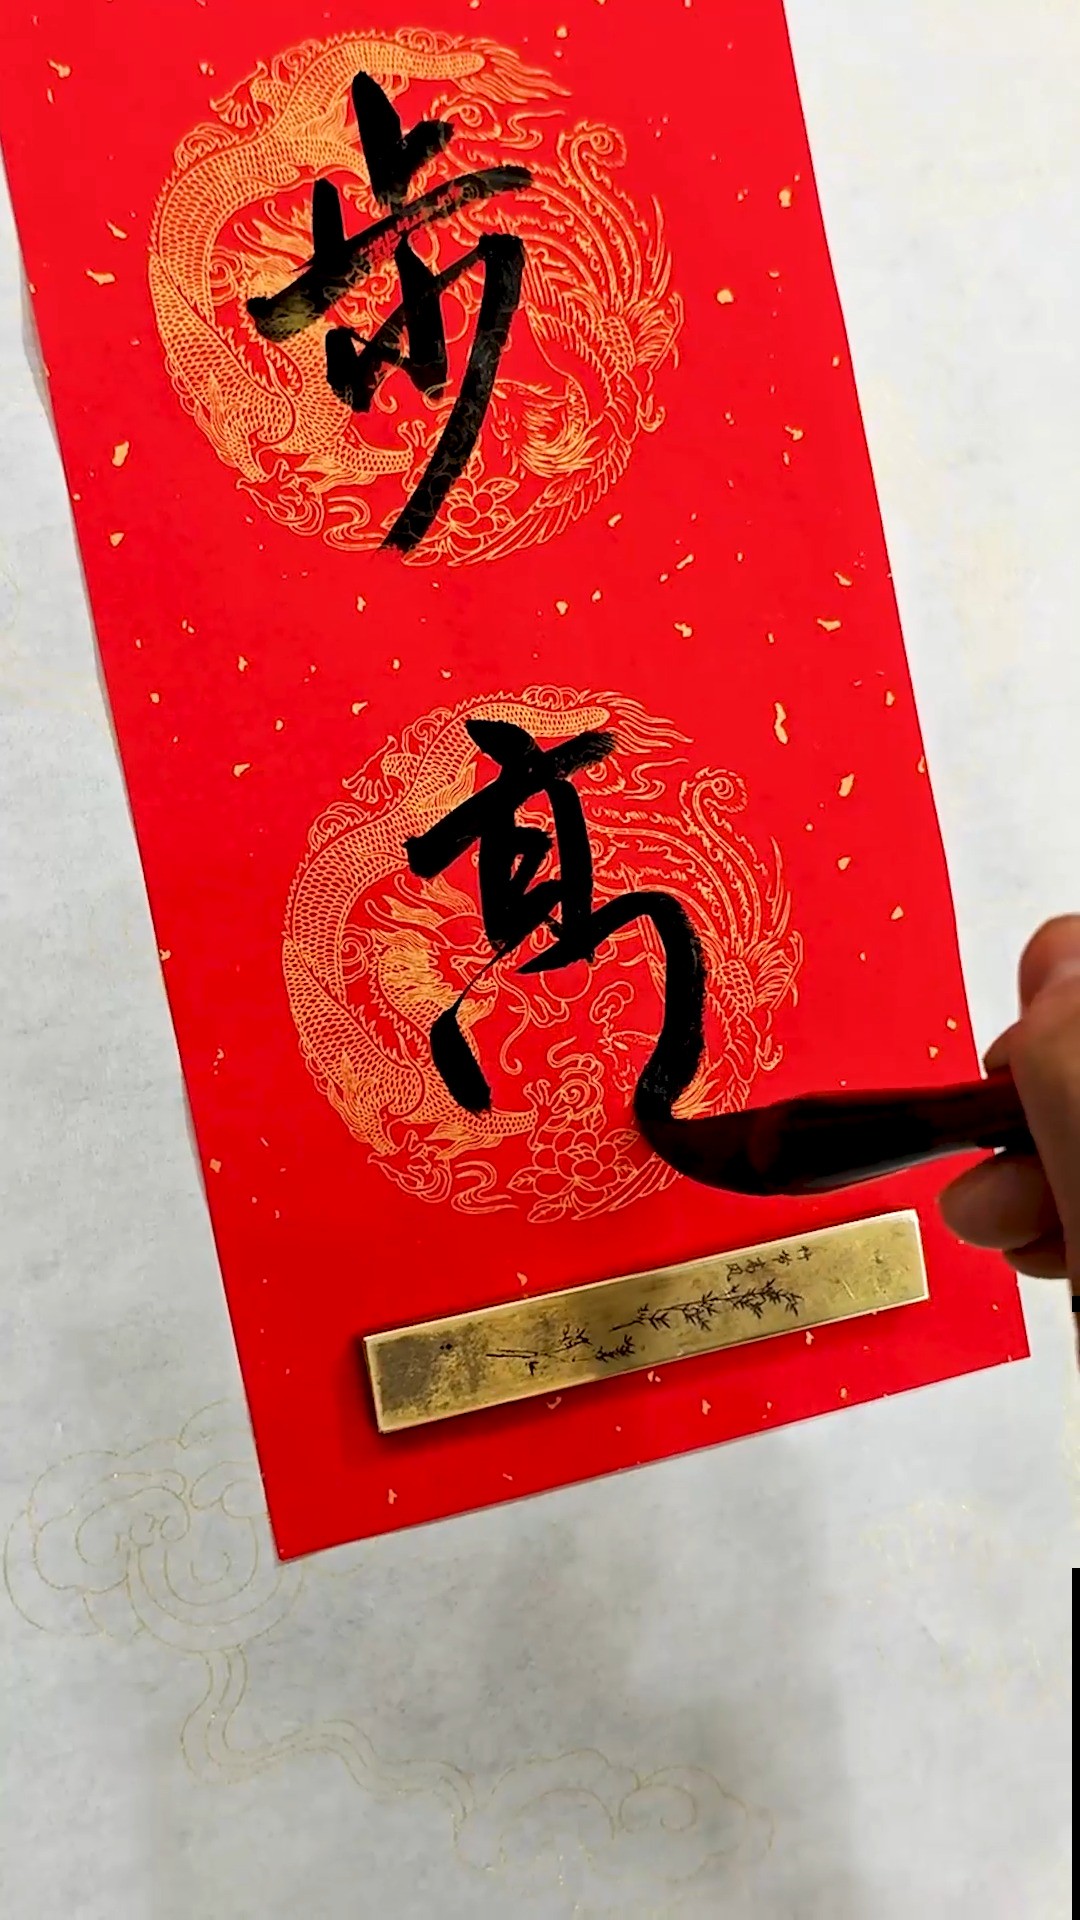 步
高
竹节高风